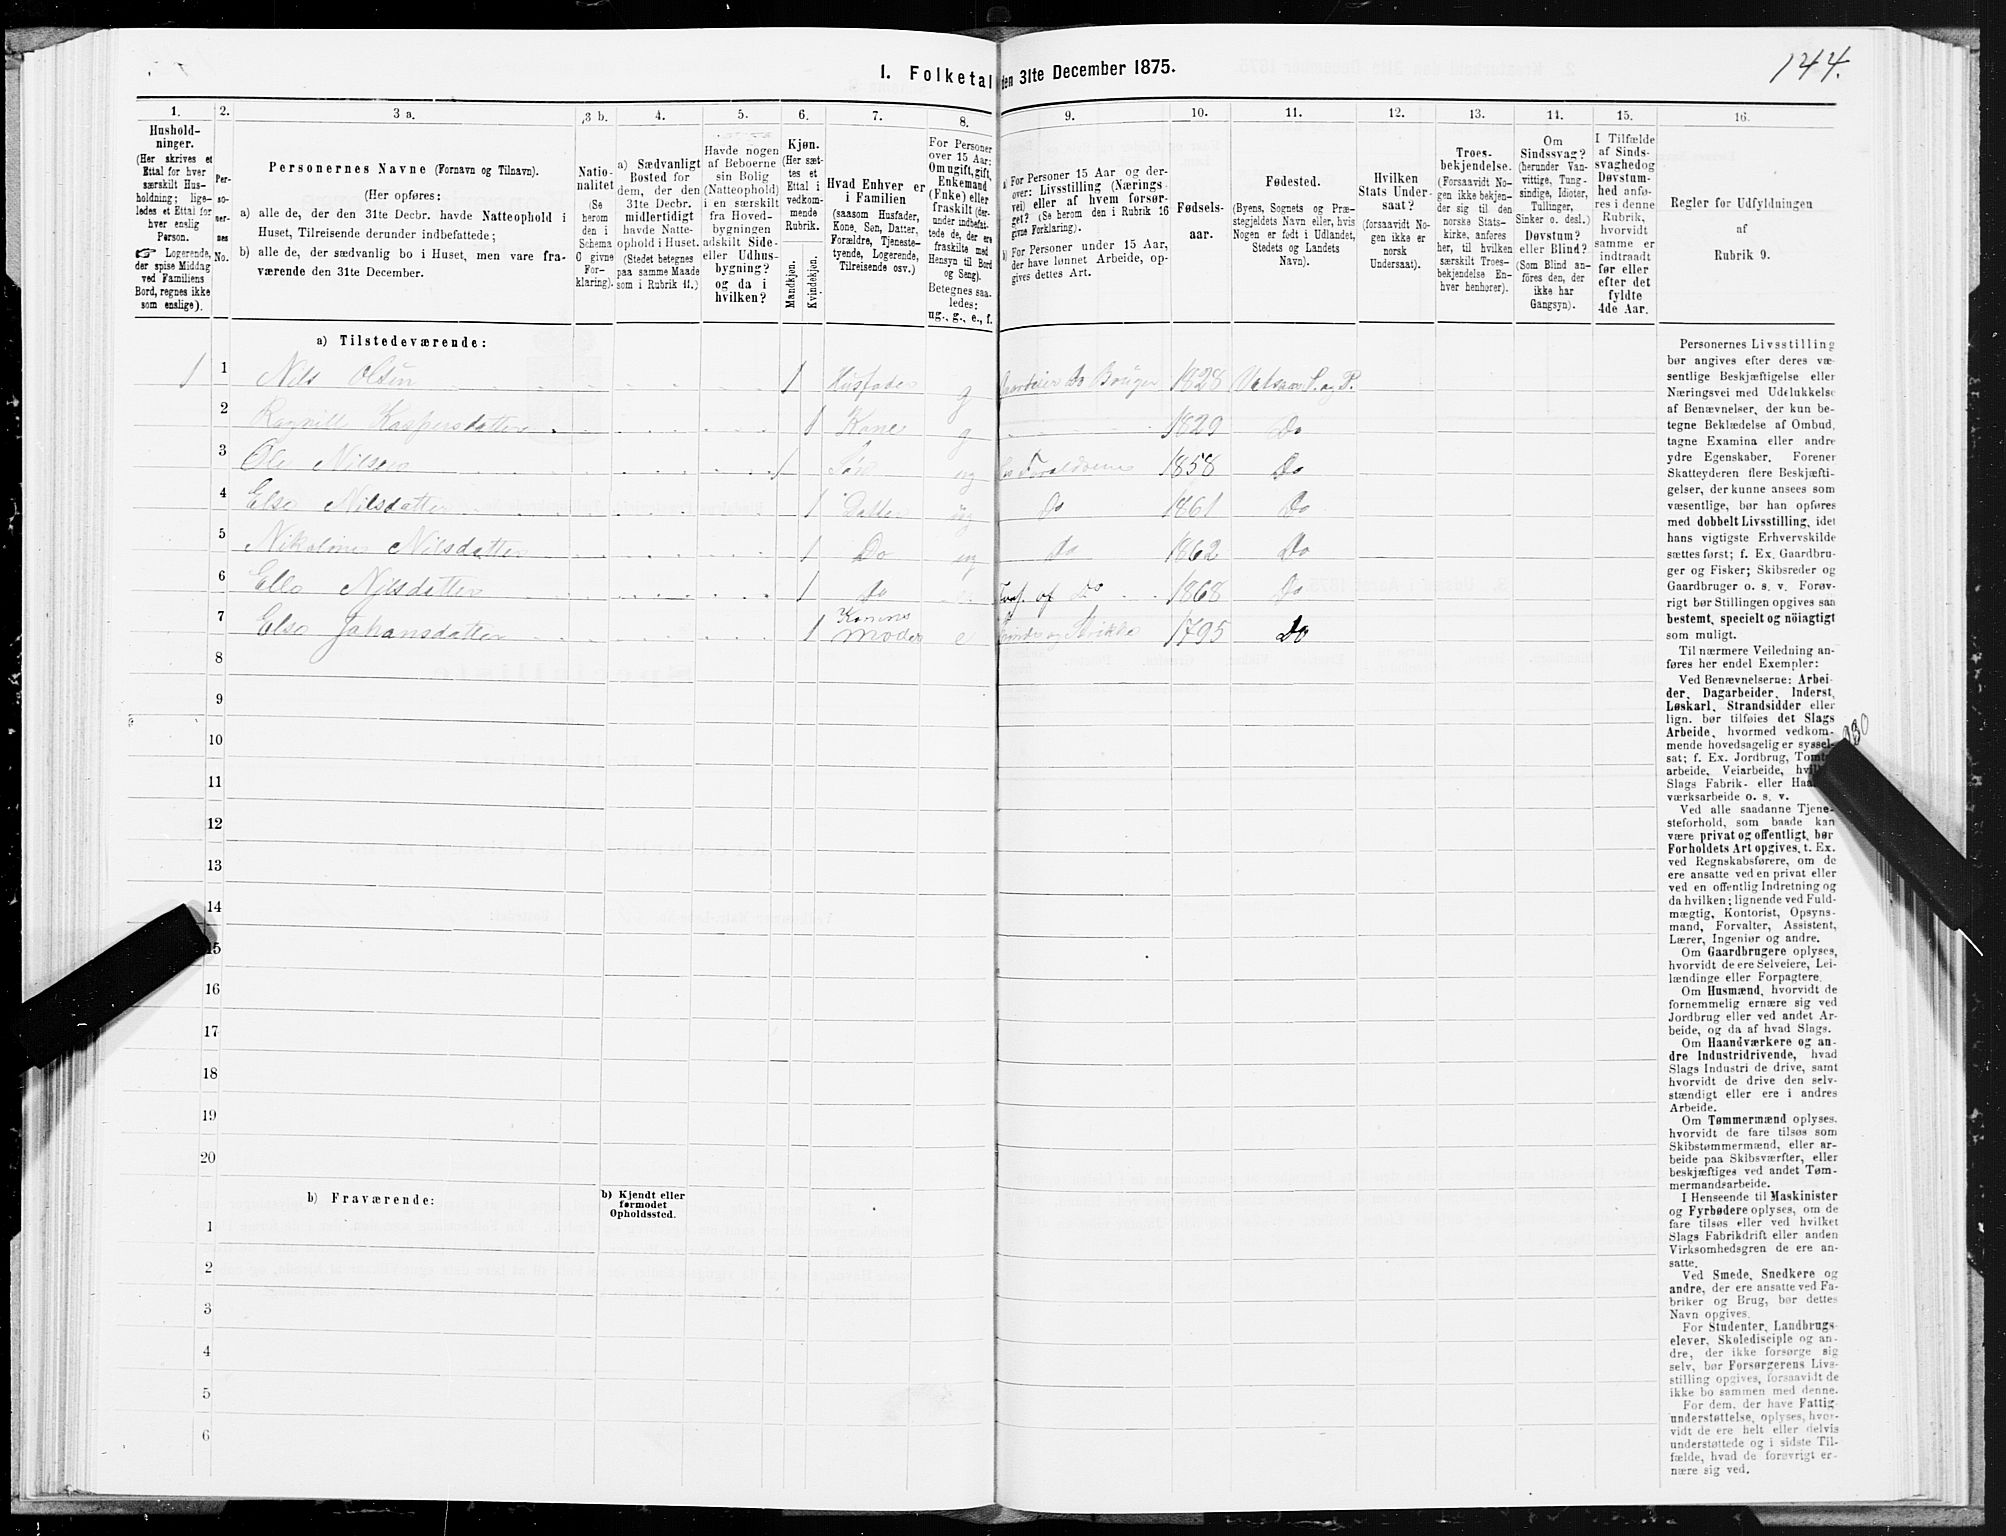 144.
I. Folketal den 31te December 1875.
1. 2. 3 a. 3 b. 4. 5. 6. 7. 8. 9. 10. 11. 12. 13. 14. 15. 16.
Hushold-
ninger.
(Her skrives et
Ettal for hver
særskilt Hus-
holdning; lige-
ledes et Ettal for
hver enslig
Person.
☞ Logerende,
der spise Middag
ved Familiens
Bord, regnes ikke
som enslige).
Per-
so-
ner-
nes
No.
Personernes Navne (Fornavn og Tilnavn).
(Her opføres:
a) alle de, der den 31te Decbr. havde Natteophold i
Huset, Tilreisende derunder indbefattede;
b) alle de, der sædvanlig bo i Huset, men vare fra-
værende den 31te December.
Natio-
nalitet
(Se
herom
den i
Schema
C givne
For-
klaring).
a) Sædvanligt
Bosted for
dem, der den
31te Decbr.
midlertidigt
havde Natte-
ophold i Huset.
(Stedet betegnes
paa samme Maade
som i Rubrik 11.)
Havde nogen
af Beboerne
sin Bolig
(Natteophold)
i en særskilt
fra Hoved-
bygningen
adskilt Side-
eller Udhus-
bygning?
og da i
hvilken?
Kjøn.
(Her sæt-
tes et
Ettal i
vedkom-
mende
Rubrik.
Mandkjøn.
Kvindekjøn.
Hvad Enhver er
i Familien
(saasom Husfader,
Kone, Søn, Datter,
Forældre, Tjeneste-
tyende, Logerende,
Tilreisende osv.)
For Personer
over 15 Aar:
Om ugift, gift,
Enkemand
(Enke) eller
fraskilt (der-
under indbefat-
tede de, der ere
fraskilte med
Hensyn til Bord
og Seng).
Betegnes saa-
ledes:
ug., g., e., f.
a) For Personer 15 Aar og der-
over: Livsstilling (Nærings-
vei) eller af hvem forsør-
get? (Se herom den i Rubrik 16
givne Forklaring).
b) For Personer under 15 Aar,
der have lønnet Arbeide, op-
gives dettes Art.
Fødsels-
aar.
Fødested.
(Byens, Sognets og Præ-
stegjeldets Navn eller, hvis
Nogen er født i Udlandet,
Stedets og Landets
Navn).
Hvilken
Stats Under-
saat?
(forsaavidt No-
gen ikke er
norsk
Undersaat).
Troes-
bekjendelse.
(Forsaavidt No-
gen ikke bekjen-
der sig til den
norske Stats-
kirke, anføres
her, til hvilken
særskilt Troes-
bekjendelse En-
hver henhører).
Om
Sindssvag?
(herunder Van-
vittige, Tung-
sindige, Idioter,
Tullinger,
Sinker o. desl.)
Døvstum?
eller Blind?
(Som Blind an-
føres den, der
ikke har
Gangsyn).
I Tilfælde
af Sinds-
svaghed og
Døvstum-
hed anfø-
res i denne
Rubrik,
hvorvidt
samme er
indtraadt
før eller
efter det
fyldte
4de Aar.
Regler for Udfyldningen
af
Rubrik 9.
a) Tilstedeværende:
1 1 Nils Olsen 1 Husfader g Bruger 1828
2 Kaspersdatter 1 Kone g 1829 Do
3 Ole Nilsen 1 Søn ug 1858 Do
4 Else Nilsdatter 1 Datter ug Do 1861 Do
5 Nilsdatter 1 Do ug Do 1862 Do
6 Nilsdatter 1 Do af Do 1868 Do
7 Else Johansdatter 1 Konens Moder e 1795 Do
8
9
10
11
12
13
14
15
16
17
18
19
20
b) Fraværende:
b) Kjendt eller
formodet
Opholdssted.
1
2
3
4
5
6
Personernes Livsstilling
bør angives efter deres væ-
sentlige Beskjæftigelse eller
Næringsvei med Udelukkelse
af Benævnelser, der kun be-
tegne Beklædelse af Ombud,
tagne Examina eller andre
ydre Egenskaber. Forener
Skatteyderen flere Beskjæfti-
gelser, der kunne ansees som
væsentlige, bør han opføres
med dobbelt Livsstilling, idet
hans vigtigste Erhvervskilde
sættes først; f. Ex. Gaardbru-
ger og Fisker; Skibsreder og
Gaardbruger o. s. v. Forøv-
rigt bør Stillingen opgives saa
bestemt, specielt og nöiagtigt
som muligt.
Til nærmere Veiledning an-
føres her endel Exempler:
Ved Benævnelserne: Arbei-
der, Dagarbeider, Inderst,
Løskarl, Strandsidder eller
lign. bør tilføies det Slags
Arbeide, hvormed vedkom-
mende hovedsagelig er syssel-
sat; f. Ex. Jordbrug, Tomte-
arbeide, Veiarbeide,
Slags Fabrik- eller
værksarbeide o. s. v.
Ved alle saadanne Tjene-
steforhold, som baade kan
være privat og offentligt, bør
Forholdets Art opgives, t. Ex.
ved Regnskabsførere, om de
ere ansatte ved en privat eller
ved en offentlig Indretning og
da hvilken; lignende ved Fuld-
mægtig, Kontorist, Opsyns-
mand, Forvalter, Assistent,
Lærer, Ingeniør og andre.
Om Gaardbrugere oplyses,
hvorvidt de ere Selveiere, Lei-
lændinge eller Forpagtere.
Om Husmænd, hvorvidt de
fornemmelig ernære sig ved
Jordbrug eller ved andet Ar-
beide, og da af hvad Slags.
Om Haandværkere og an-
dre Industridrivende, hvad
Slags Industri de drive, samt
hvorvidt de drive den selv-
stændigt eller ere i andres
Arbeide.
Om Tømmermænd oplyses,
hvorvidt de fare tilsøs som
Skibstømmermænd, eller ar-
beide paa Skibsværfter, eller
beskjæftiges ved andet Tøm-
mermandsarbeide.
I Henseende til Maskinister
og Fyrbødere oplyses, om de
fare tilsøs eller ved hvilket
Slags Fabrikdrift eller anden
Virksomhedsgren de ere an-
satte.
Ved Smede, Snedkere og
andre, der ere ansatte ved Fa-
briker og Brug, bør dettes
Navn opgives.
For Studenter, Landbrugs-
elever, Skoledisciple og an-
dre, der ikke forsørge sig
selv, bør Forsørgerens Livs-
stilling opgives, forsaavidt de
ikke bo sammen med denne.
For dem, der have Fattig-
understøttelse, oplyses, hvor-
vidt de ere helt eller delvis
understøttede og i sidste Til-
fælde, hvad de forøvrigt er-
nære sig ved.